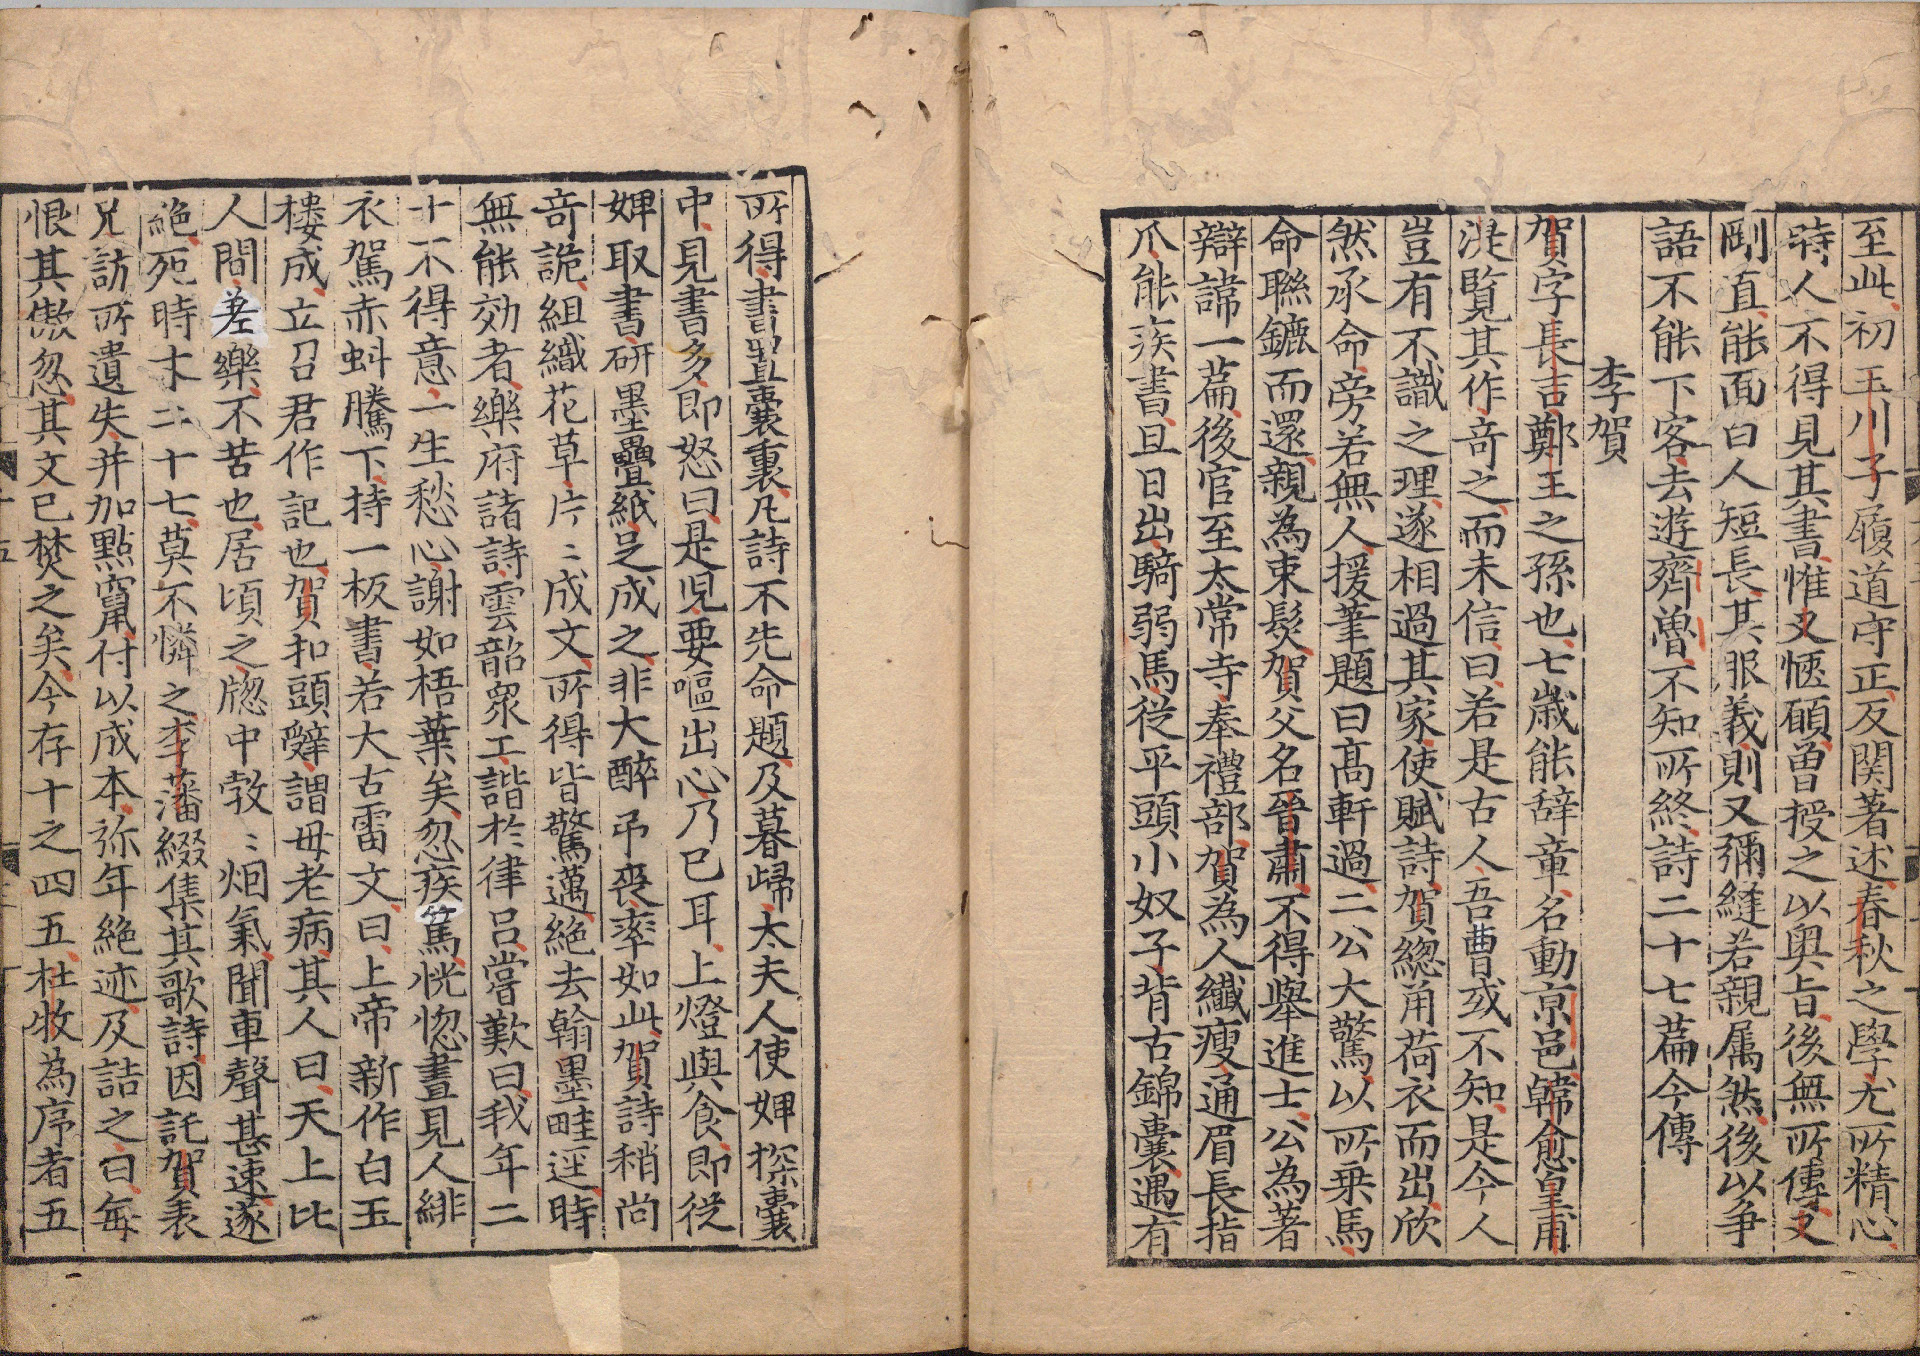 至此初玉川子履道守正反関著述春秋之學尤所精心
時人不得見其書惟又愜碩曽授之以奥旨後無所傳又
剛直能面曰人短長其服義則又彌縫若親属然後以争
語不能下客去遊齊曽不知所終詩二十七篇今傳
李賀
賀字長吉鄭王之孫也七歳能辞章名動京邑韓愈皇甫
湜覧其作竒之而未信曰若是古人吾曹或不知是今人
豈有不識之理遂相過其家使賦詩賀緫角荷衣而出欣
然承命旁若無人援筆題曰髙軒過二公大驚以所乗馬
命聮鑣而還親為束髮賀父名晋肅不得舉進士公為著
辯諱一篇後官至太常寺奉禮郎賀為人纖瘦通眉長指
爪能疾書旦日出騎弱馬従平頭小奴子背古錦囊遇有
所得書置囊裏凡詩不先命題及暮歸太夫人使婢探囊
中見書多即怒曰是児要嘔出心乃已耳上燈與食即従
婢取書研墨疊紙足成之非大醉弔喪率如此賀詩稍尚
竒詭組織花草片〻成文所得皆驚邁絶去翰墨畦逕時
無能効者樂府諸詩雲韶衆工諧於律呂嘗歎曰我年二
十不得意一生愁心謝如梧葉矣忽疾篤恍惚晝見人緋
衣駕赤虯騰下持一板書若大古雷文曰上帝新作白玉
樓成立召君作記也賀扣頭辤謂母老病其人曰天上比
人間差樂不苦也居頃之牎中㪍〻烟氣聞車聲甚速遂
絶死時才二十七莫不憐之李藩綴集其歌詩因託賀表
兄訪所遺失并加點竄付以成本弥年絶迹及詰之曰每
恨其傲忽其文已焚之矣今存十之四五杜牧為序者五